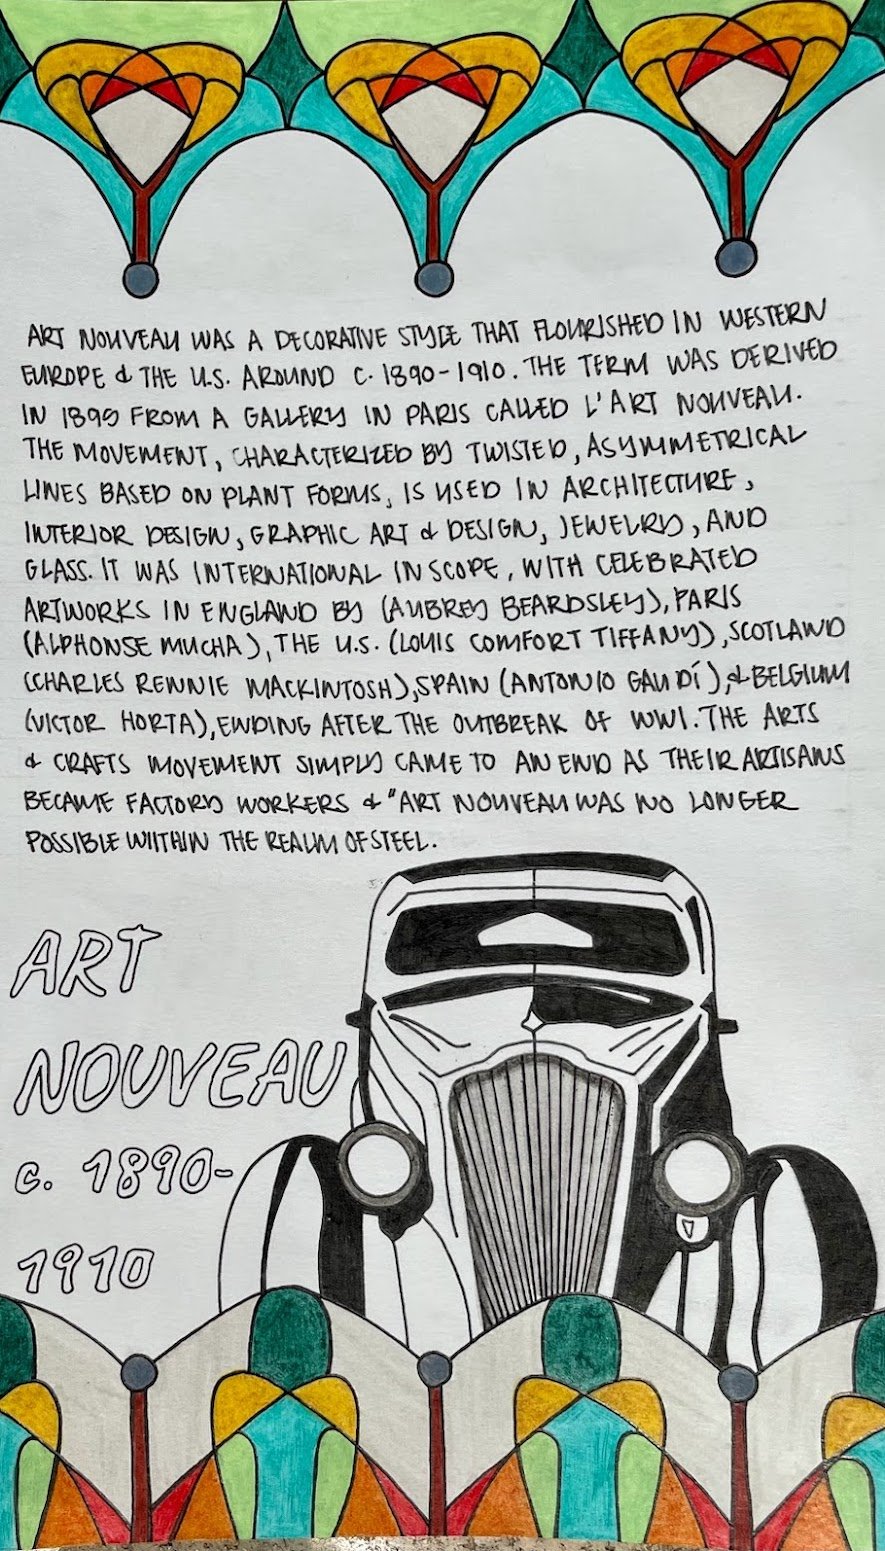 ART NOUVEAU WAS A DECORATIVE STYLE THAT FLOURISHED IN WESTERN
EUROPE & THE U.S. AROUND C. 1890-1910. THE TERM WAS DERIVED
IN 1895 FROM A GALLERY IN PARIS CALLED L'ART NOUVEAU.
THE MOVEMENT, CHARACTERIZED BY TWISTED, ASYMMETRICAL
LINES BASED ON PLANT FORMS, IS USED IN ARCHITECTURE,
INTERIOR DESIGN, GRAPHIC ART & DESIGN, JEWELRY, AND
GLASS. IT WAS INTERNATIONAL IN SCOPE, WITH CELEBRATED
ARTWORKS IN ENGLAND BY (AUBREY BEARDSLEY), PARIS
(ALPHONSE MUCHA), THE U.S. (LOUIS COMFORT TIFFANY), SCOTLAND
(CHARLES RENNIE MACKINTOSH), SPAIN (ANTONIO GAUDÍ), & BELGIUM
(VICTOR HORTA), ENDING AFTER THE OUTBREAK OF WWI. THE ARTS
& CRAFTS MOVEMENT SIMPLY CAME TO AN END AS THEIR ARTISANS
BECAME FACTORY WORKERS & "ART NOUVEAU WAS NO LONGER
POSSIBLE WIITHIN THE REALM OF STEEL.
ART
NOUVEAU
c. 1890-
1910